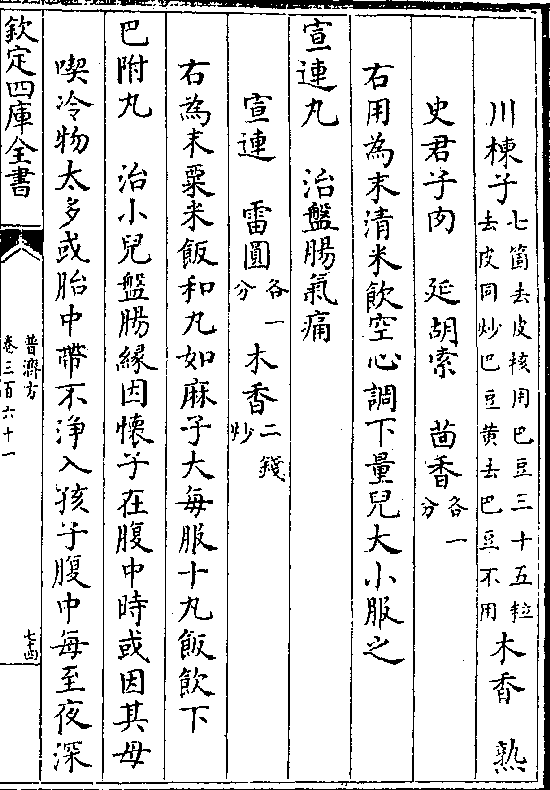 川楝子七箇去皮核用巴豆三十五粒去皮同炒巴豆黄去巴豆不用木香熟
史君子肉延胡索茴香各一分
右用為末清米飲空心調下量兒大小服之
宣連丸治盤腸氣痛
宣連雷圓各一分木香二錢炒
右為末粟米飯和丸如麻子大每服十丸飯飲下
巴附丸治小兒盤腸緣因懷子在腹中時或因其母
喫冷物太多或胎中帶不浄入孩子腹中每至夜深
欽定四庫全書
普濟方
卷三百六十一